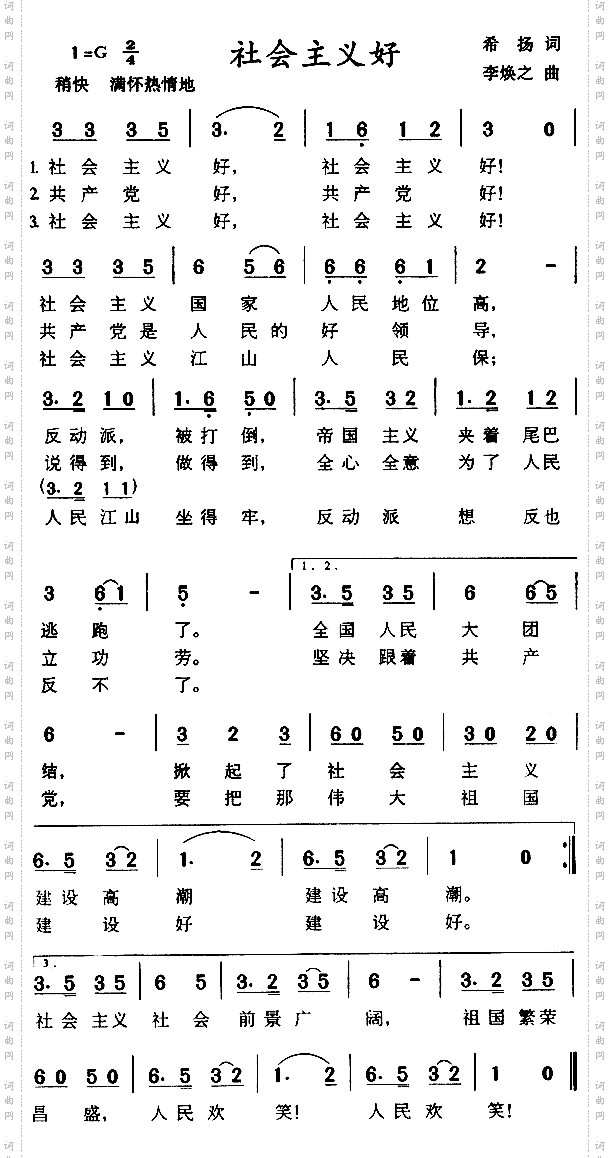 1=G 2/4
社会主义好
希扬 词
李焕之 曲
稍快 满怀热情地
3 3 3 5 | 3. 2 | 1 6 1 2 | 3 0 |
1.社会 主义 好, 社会 主义 好!
2.共产 党 好, 共产 党 好!
3.社会 主义 好, 社会 主义 好!
3 3 3 5 | 6 5 6 | 6 6 6 1 | 2 - |
社会 主义 国 家 人民 地位 高,
共产 党是 人 民的 好 领 导,
社会 主义 江 山 人 民 保;
3. 2 1 0 | 1. 6 5 0 | 3. 5 3 2 | 1. 2 1 2 |
反动派, 被打倒, 帝国 主义 夹着 尾巴
说得到, 做得到, 全心 全意 为了 人民
(3. 2 1 1)
人民江山 坐得牢, 反动 派 想 反也
3 6 1 | 5 - | 3. 5 3 5 | 6 6 5 |
1. 2.
逃 跑 了。 全国 人民 大 团
立 功 劳。 坚决 跟着 共 产
反 不 了。
6 - | 3 2 3 | 6 0 5 0 | 3 0 2 0 |
结, 掀 起 了 社 会 主 义
党, 要 把 那 伟 大 祖 国
6. 5 3 2 | 1. 2 | 6. 5 3 2 | 1 0 :‖
建设 高 潮 建设 高 潮。
建 设 好 建 设 好。
3.
3. 5 3 5 | 6 5 | 3. 2 3 5 | 6 - | 3. 2 3 5 |
社会 主义 社 会 前景 广 阔, 祖国 繁荣
6 0 5 0 | 6. 5 3 2 | 1. 2 | 6. 5 3 2 | 1 0 ‖
昌 盛, 人民 欢 笑! 人民 欢 笑!
词曲网